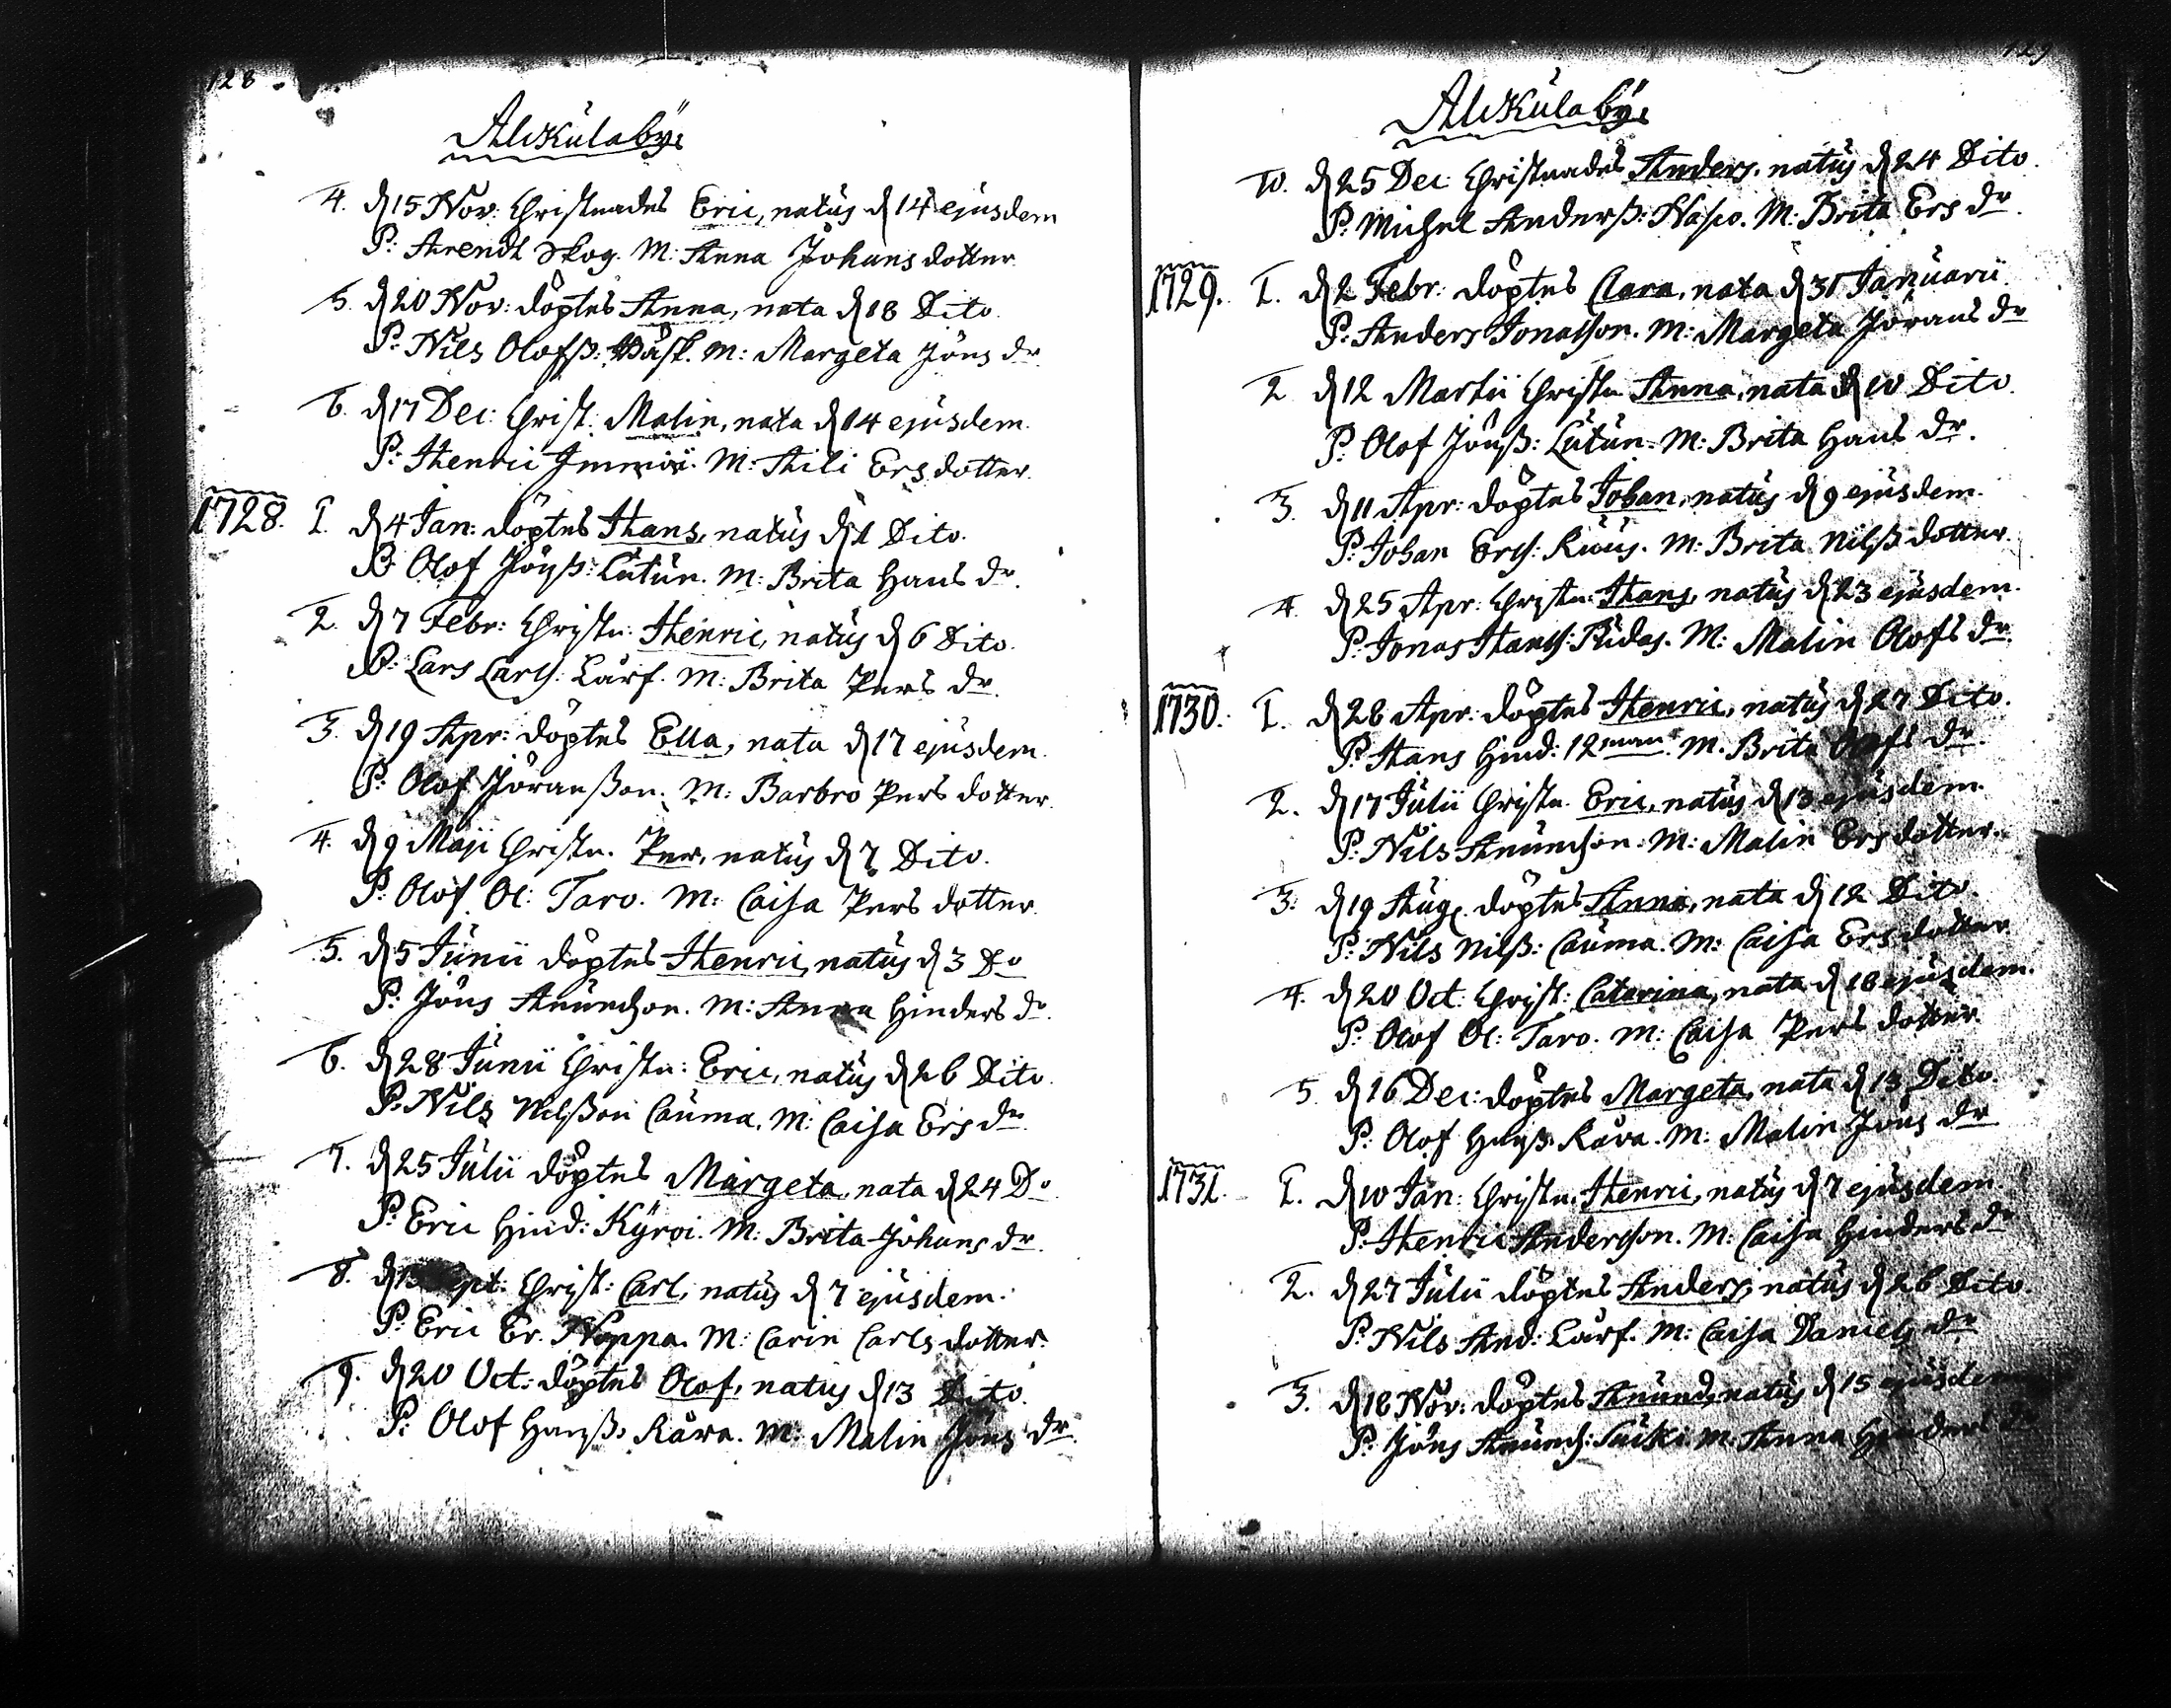 128
Alikülabÿ:
4. d 15 Nov: Christnades Eric, natus d 14 ejusdem
P: Arendt Skog. M: Anna Johans dotter
5. d 20 Nov: döptes Anna, nata d 18 Dito.
P: Nils Olofß: M: Margeta Jöns dr
6. d 17 Dec: Christ: Malin, nata d 14 ejusdem.
P: Henric Immoi. M: Ers dotter.
1728. 1. d 4 Jan: döptes Hans, natus d 1 Dito.
P: Olof Jönß: Lütün. M: Brita Hans dr.
2. d 7 Febr: Christn: Henric, natus d 6 Dito.
P: Lars Larß: Lärf. M: Brita Pers dr.
3. d 19 Apr: döptes Ella, nata d 17 ejusdem.
P: Olof Jöranßon. M: Barbro Pers dotter.
4. d 9 Maji Christn. Per, natus d 7 Dito.
P: Olof Ol: Taro. M: Caisa Pers dotter.
5. d 5 Junii döptes Henric, natus d 3 Do
P: Jöns Anundson. M: Anna Hinders dr.
6. d 28 Junii Christn: Eric, natus d 26 Dito.
P: Nils Nilßon Cauma. M: Caisa Ers dr.
7. d 25 Julii döptes Margeta, nata d 24 Do
P: Eric Hind: Kyröi. M: Brita Johans dr.
8. d Sept: Christ: Carl, natus d 7 ejusdem.
P: Eric Er. Noppa. M: Carin Carls dotter.
9. d 20 Oct: döptes Olof, natus d 13 Dito.
P: Olof Hanß: Kåra. M: Malin Jöns dr.
129
Alikülabÿ:
10. d 25 Dec: Christnades Anders, natus d 24 Dito.
P: Michel Anderß: Hapo. M: Brita Ers dr.
1729. 1. d 2 Febr: döptes Clara, nata d 31 Januarii.
P: Anders Jonasson. M: Margeta Jörans dr
2. d 12 Martii Christn Anna, nata d 10 Dito.
P: Olof Jönß: Lütün. M: Brita Hans dr.
3. d 11 Apr: döptes Johan, natus d 9 ejusdem.
P: Johan Ersß: M: Brita Nilß dotter.
4. d 25 Apr: Christn: Hans, natus d 23 ejusdem.
P: Jonas Hansß: Pidas. M: Malin Olofs dr.
1730. 1. d 28 Apr: döptes Henric, natus d 27 Dito.
P: Hans Hind: 12man. M: Brita Olofs dr.
2. d 17 Julii Christn. Eric, natus d 13 ejusdem.
P: Nils Anundson. M: Malin Ers dotter.
3. d 19 Aug. döptes Anna, nata d 12 Dito.
P: Nils Nilß: Cauma. M: Caisa Ers dotter
4. d 20 Oct: Christ: Catarina, nata d 18 ejusdem.
P: Olof Ol: Taro. M: Caisa Pers dotter.
5. d 16 Dec: döptes Margeta, nata d 13 Dito.
P: Olof Hanß: Kåra. M: Malin Jöns dr
1731. 1. d 10 Jan: Christn. Henric, natus d 7 ejusdem
P: Henric Anderßon. M: Caisa Hinders dr
2. d 27 Julii döptes Anders, natus d 26 Dito.
P: Nils And: Lärf. M: Caisa Daniels dr
3. d 18 Nov: döptes Anund, natus d 15 ejusdem
P: Jöns Anundß: M: Anna Hinders dr